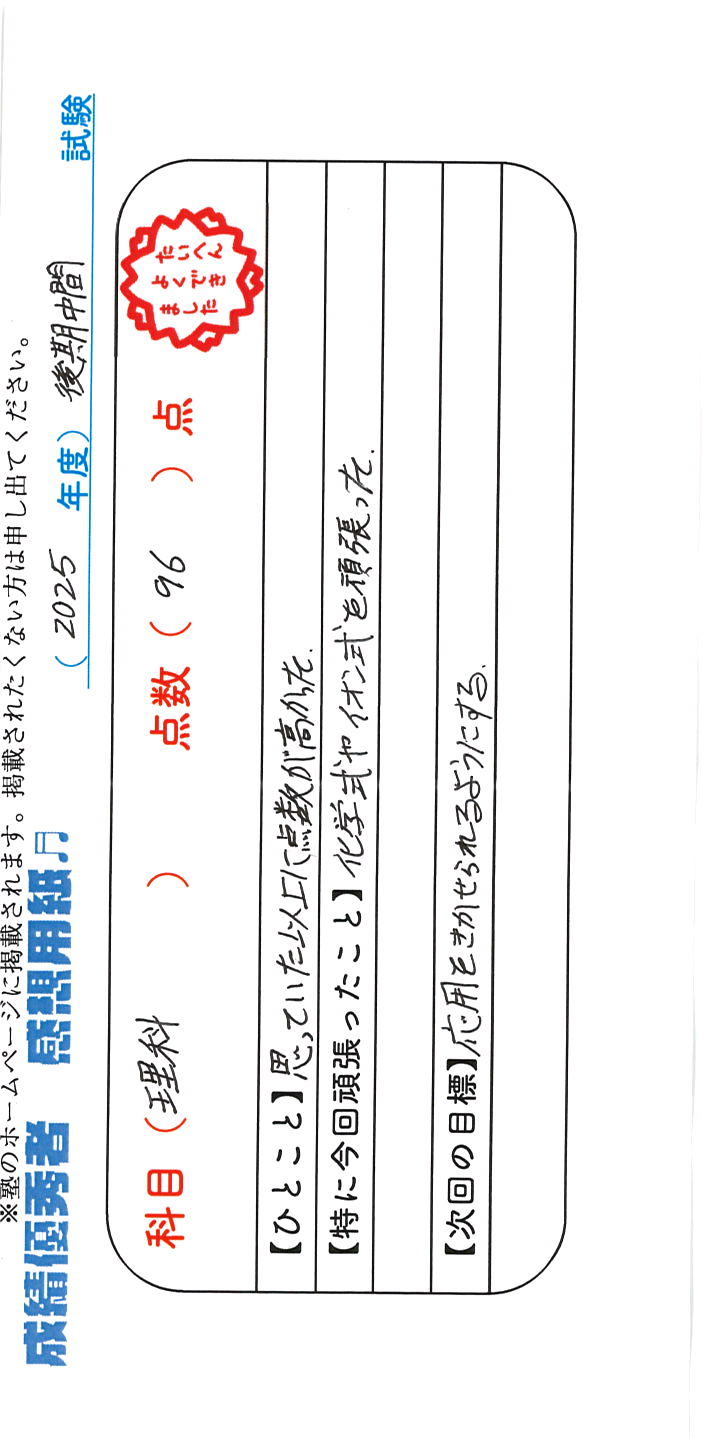 ※塾のホームページに掲載されます。掲載されたくない方は申し出てください。
成績優秀者 感想用紙♬
（2025 年度）後期中間 試験
科目（理科） 点数（96）点
たいへん
よくでき
ました
【ひとこと】思っていた以上に点数が高かった.
【特に今回頑張ったこと】化学式やイオン式を頑張った.
【次回の目標】応用をきかせられるようにする.